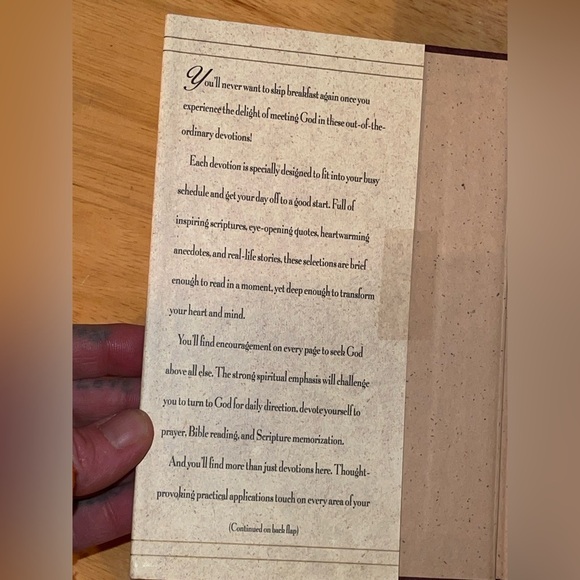 You'll never want to skip breakfast again once you
experience the delight of meeting God in these out-of-the-
ordinary devotions!
Each devotion is specially designed to fit into your busy
schedule and get your day off to a good start. Full of
inspiring scriptures, eye-opening quotes, heartwarming
anecdotes, and real-life stories, these selections are brief
enough to read in a moment, yet deep enough to transform
your heart and mind.
You'll find encouragement on every page to seek God
above all else. The strong spiritual emphasis will challenge
you to turn to God for daily direction, devote yourself to
prayer, Bible reading, and Scripture memorization.
And you'll find more than just devotions here. Thought-
provoking practical applications touch on every area of your
(Continued on back flap)